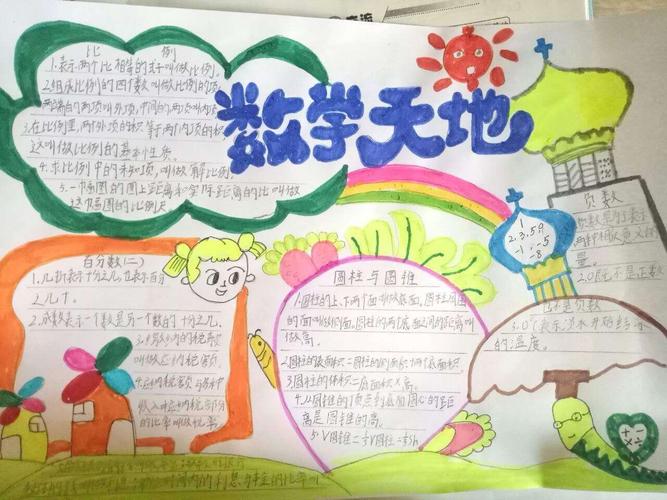 数学天地
比 例
1.表示两个比相等的式子叫做比例。
2.组成比例的四个数叫做比例的项,
两端的两项叫外项,中间的两项叫内项
3.在比例里,两个外项的积等于两个内项的积,
这叫做比例的基本性质。
4.求比例中的未知项,叫做解比例。
5.一幅图的图上距离和实际距离的比叫做
这幅图的比例尺
百分数(二)
1.几折表示十分之几,也表示百分
之几十。
2.成数表示一个数是另一个数的十分之几,
叫做应纳税额
4.应纳税额与各种
收入中应纳税部分
的比率叫做税率
的利息与本金的比率叫
圆柱与圆锥
1.圆柱的上、下两个面叫做底面,圆柱周围
的面叫做侧面,圆柱的两个底面之间的距离叫
做高。
2.圆柱的表面积=圆柱的侧面积+两个底面积。
3.圆柱的体积=底面积×高。
4.从圆锥的顶点到底面圆心的距
离是圆锥的高。
5.V圆锥=⅓V圆柱=⅓sh
1
2.3.5.9
-1 -5
-8
负数
两种相反意义的
量。
2.0既不是正数
也不是负数
3.0℃表示淡水开始结冰
的温度。
+ -
× ÷